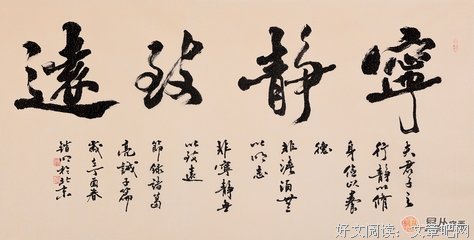 寧靜致遠
夫君子之
行靜以脩
身儉以養
德
非澹泊無
以明志
非寧靜無
以致遠
節錄諸葛
亮誡子篇
歲在丁酉春
於北京
好文阅读：文章吧网